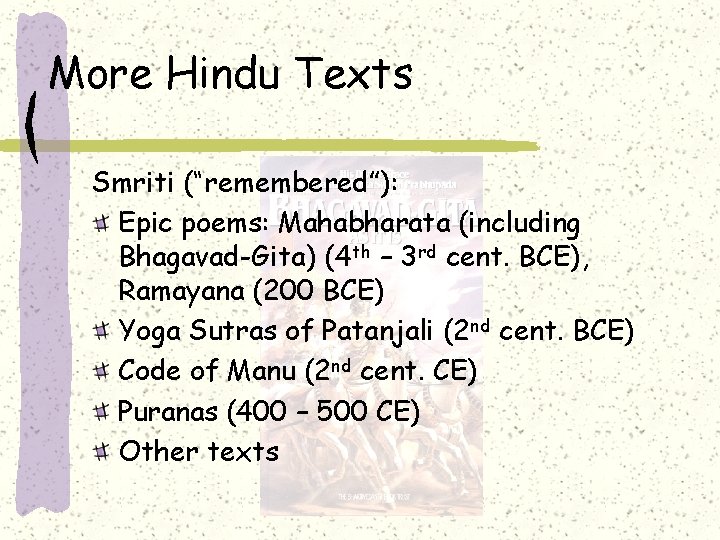 More Hindu Texts
Smriti (“remembered”):
Epic poems: Mahabharata (including
Bhagavad-Gita) (4th – 3rd cent. BCE),
Ramayana (200 BCE)
Yoga Sutras of Patanjali (2nd cent. BCE)
Code of Manu (2nd cent. CE)
Puranas (400 – 500 CE)
Other texts
BHAGAVAD-GITA